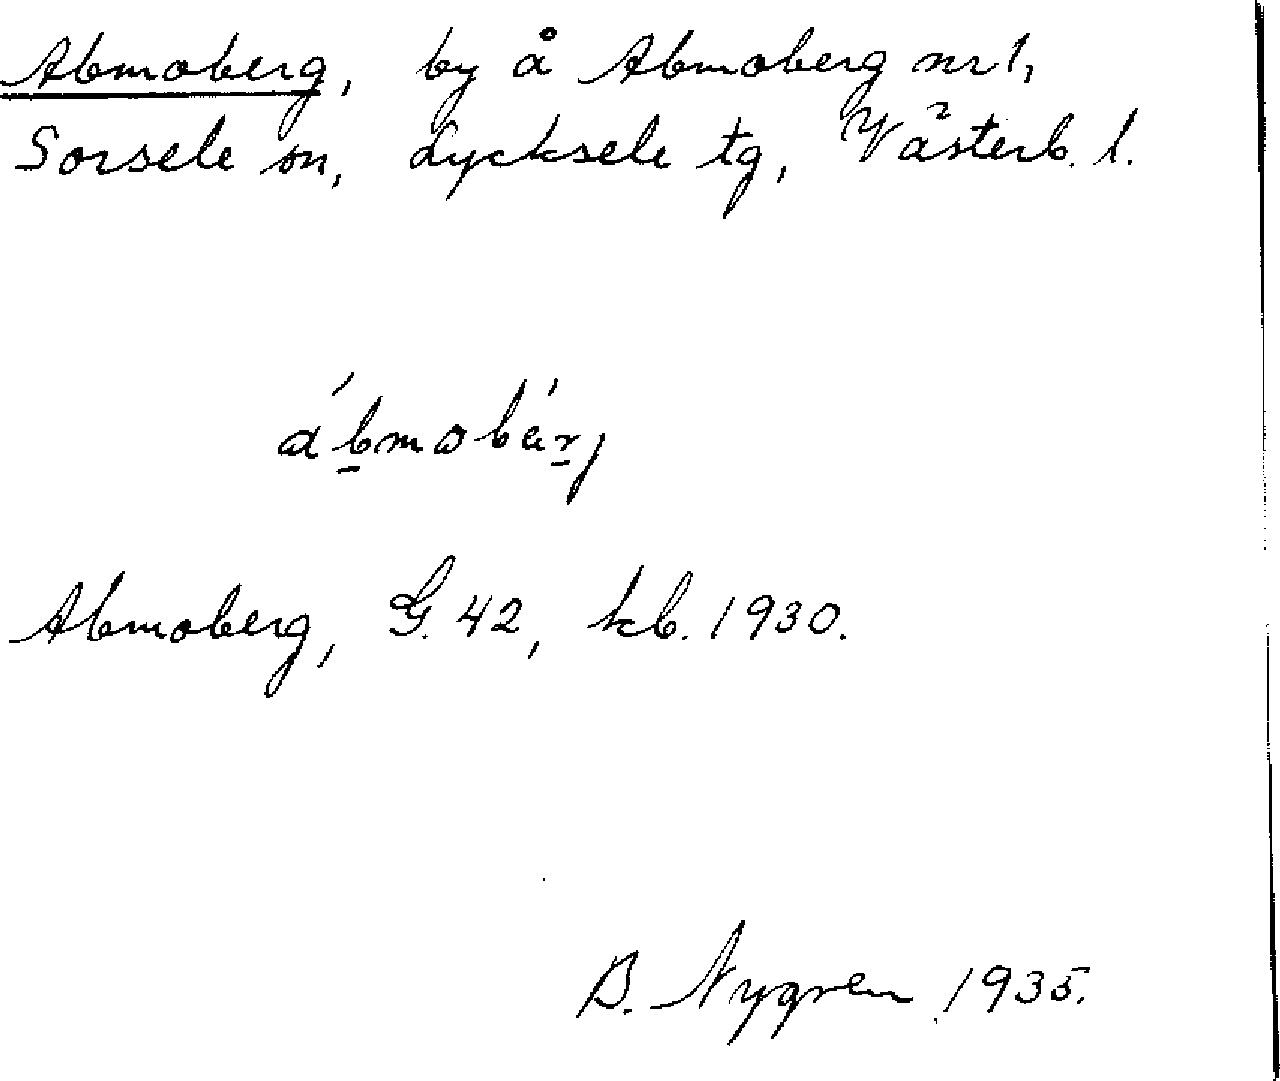 Abmoberg, by å Abmoberg nr 1,
Sorsele sn, Lycksele tg, Västerb. l.
ábmobárj
Abmoberg, G. 42, kb. 1930.
B. Nygren 1935.